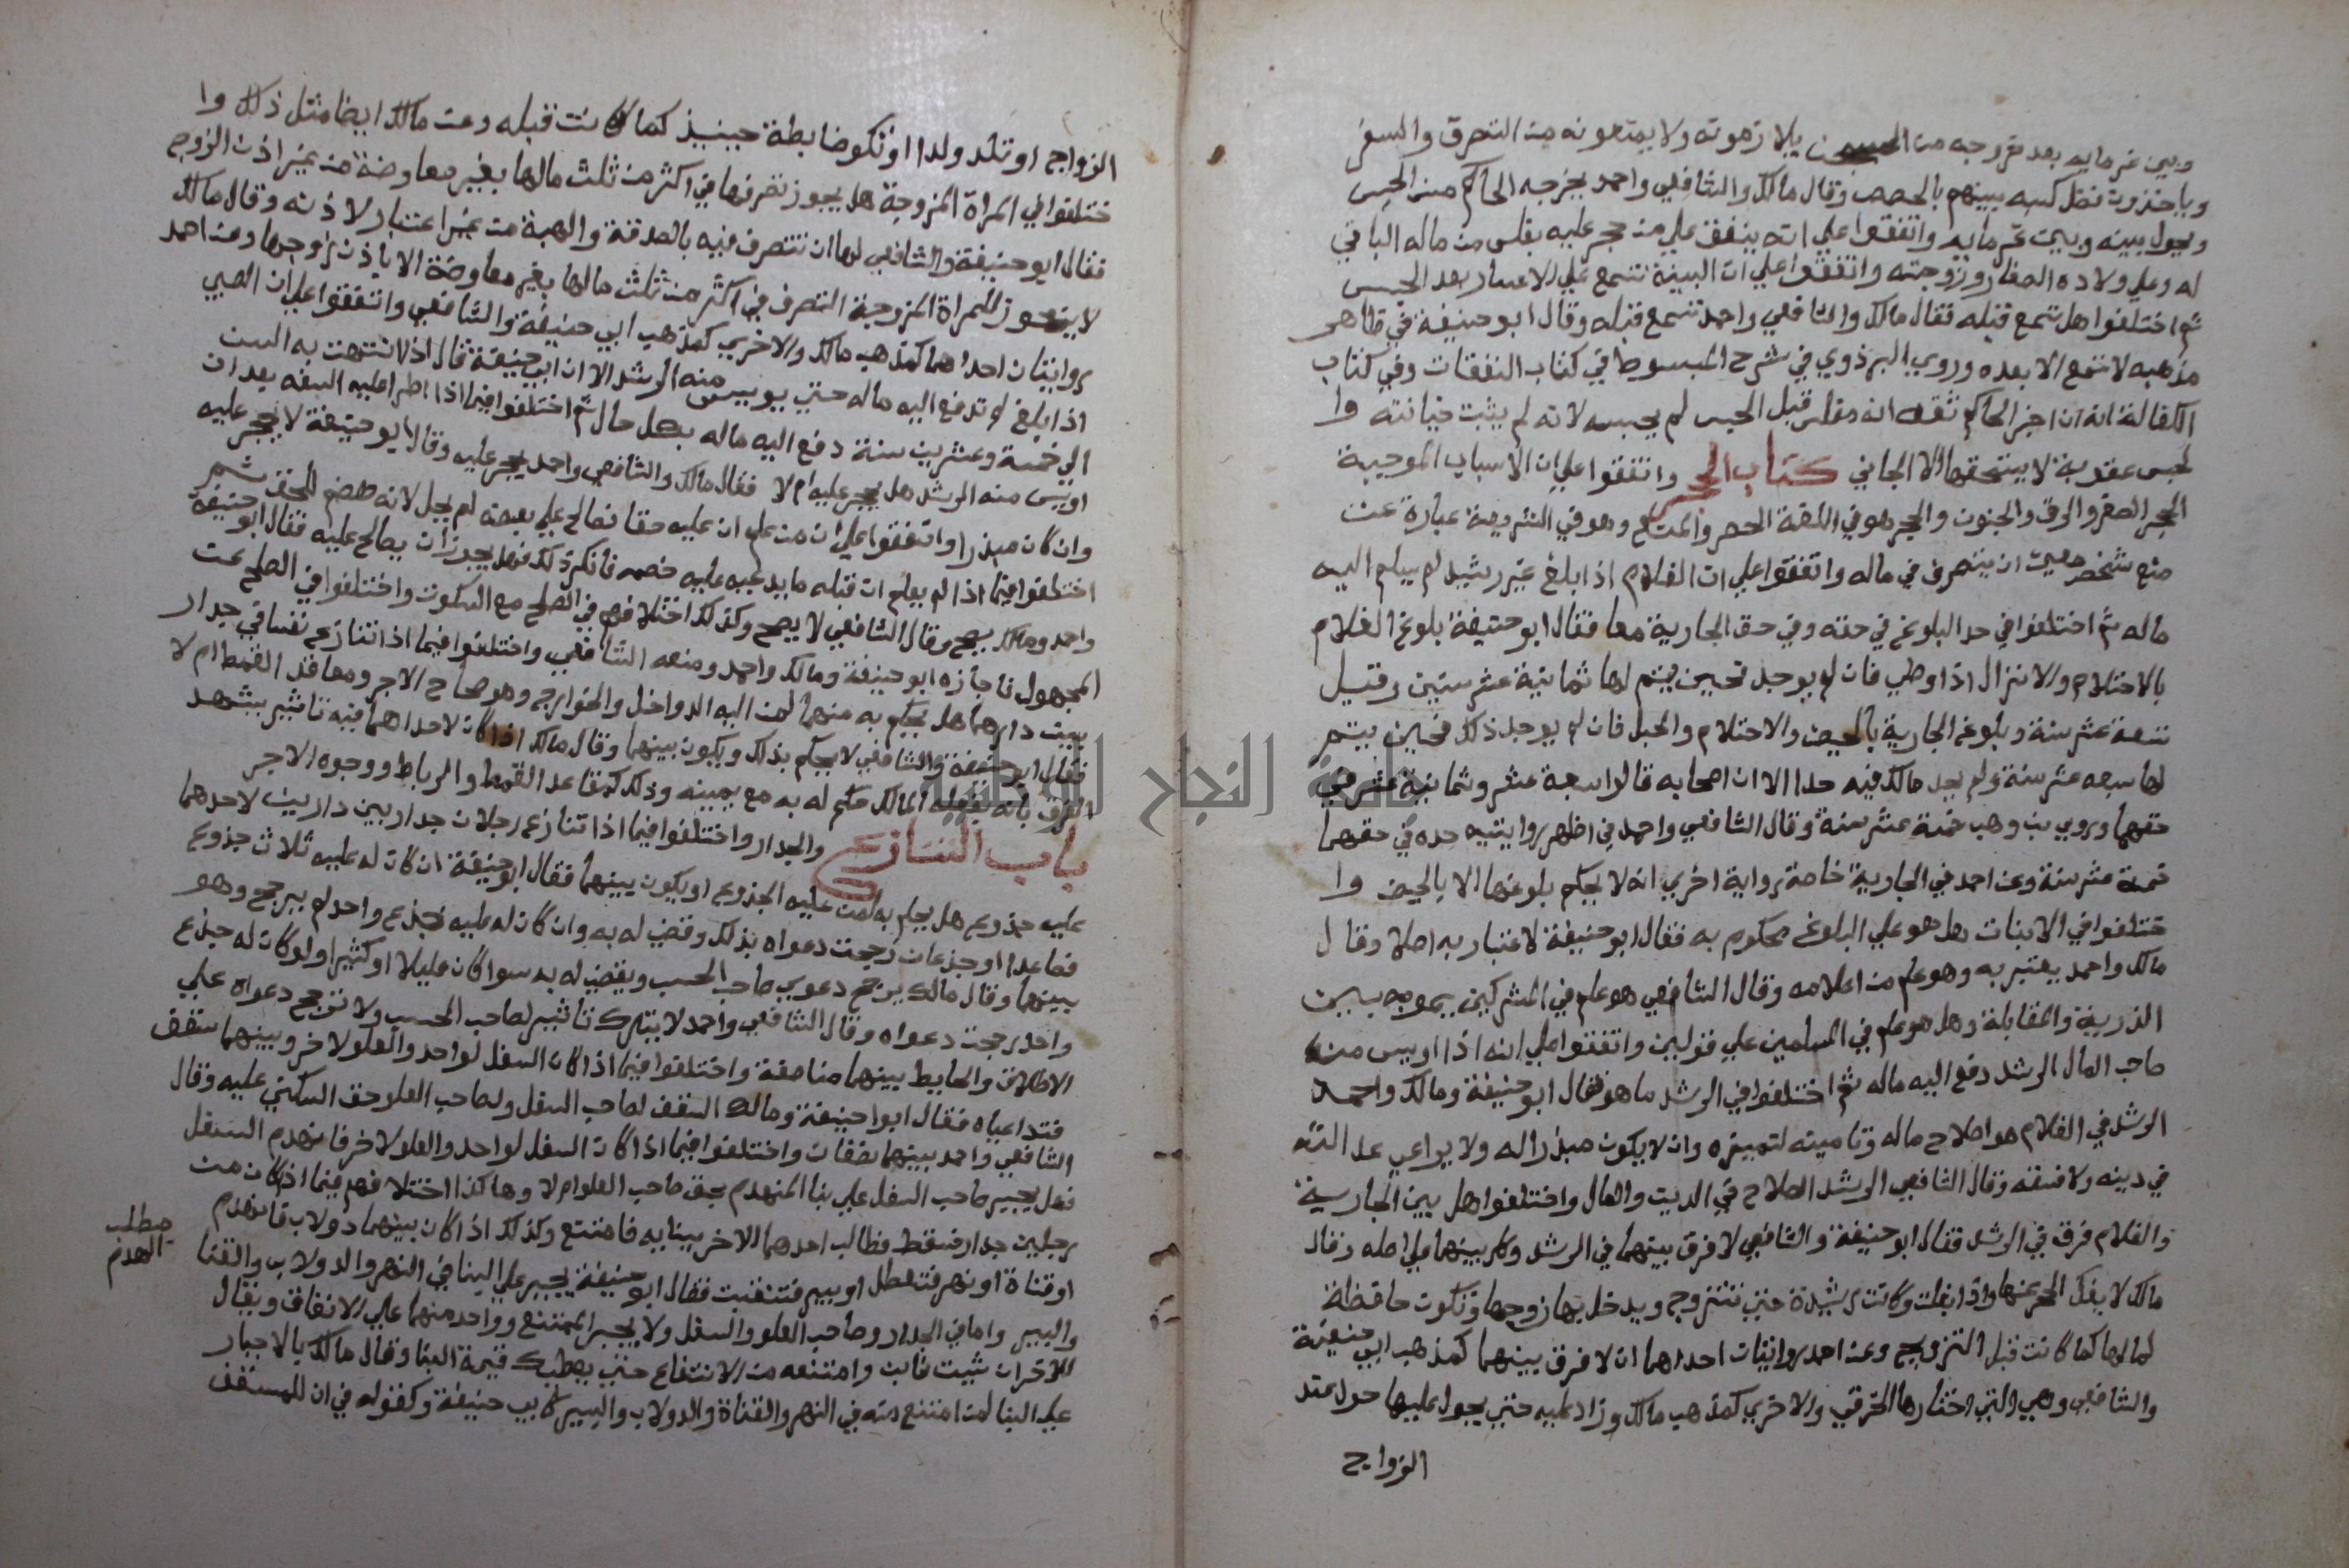 وبين غرمايه بعد خروجه من الحبس يلازمونه ولا يمنعونه من التصرف والسفر
وياخذون فضل كسبه بينهم بالحصص وقال مالك والشافعي واحمد يخرجه الحاكم من الحبس
ويحول بينه وبين غرمايه واتفقوا علي انه ينفق علي من حجر عليه بفلس من ماله الباقي
له وعلي ولاده الصغار وزوجته واتفقوا علي ان البينة تسمع علي الاعسار بعد الحبس
ثم اختلفوا هل تسمع قبله فقال مالك والشافعي واحمد تسمع قبله وقال ابو حنيفة في ظاهر
مذهبه لا تسمع الا بعده وروي البزذوي في شرح المبسوط في كتاب النفقات وفي كتاب
الكفالة انه ان اخبر الحاكم ثقه انه مفلس قبل الحبس لم يحبسه لانه لم يثبت خيانته وا
لحبس عقوبة لا يستحقها الا الجاني كتاب الحجر واتفقوا علي ان الاسباب الموجبة
الحجر الصغر والرق والجنون والحجر هو في اللغة الحصر والمنع وهو في الشريعة عبارة عن
منع شخص معين ان يتصرف في ماله واتفقوا علي ان الغلام اذا بلغ غير رشيد لم يسلم اليه
ماله ثم اختلفوا في حد البلوغ في حقه وفي حق الجارية معا فقال ابو حنيفة بلوغ الغلام
بالاحتلام والانزال اذا وطي فان لم يوجد فحين يتم لها ثمانية عشر سنين وقيل
تسعة عشر سنة وبلوغ الجارية بالحيض والاحتلام والحبل فان لم يوجد ذلك فحين يتم
لها سبعه عشر سنة ولم يحد مالك فيه حدا الا ان اصحابه قالوا سبعة عشر وثمانية عشر في
حقهما وروي بن وهب خمسة عشر سنة وقال الشافعي واحمد في اظهر روايتيه حده في حقهما
خمسة عشر سنة وعن احمد في الجارية خاصة رواية اخري انه لا يحكم بلوغها الا بالحيض وا
ختلفوا في الانبات هل هو علي البلوغ محكوم به فقال ابو حنيفة لا عتبار به اصلا وقال
مالك واحمد يعتبر به وهو علم من اعلامه وقال الشافعي هو علم في المشركين يموجه بين
الذرية والمقابلة وهل هو علم في المسلمين علي قولين واتفقوا علي انه اذا اويس من
صاحب المال الرشد دفع اليه ماله ثم اختلفوا في الرشد ما هو فقال ابو حنيفة ومالك واحمد
الرشد في الغلام هو اصلاح ماله وتاميته لتمييزه وان لا يكون مبذرا له ولا يراعي عدالته
في دينه ولا فسقه وقال الشافعي الرشد الصلاح في الدين والمال واختلفوا هل بين الجارية
والغلام فرق في الرشد فقال ابو حنيفة والشافعي لا فرق بينهما في الرشد وكل بينهما علي اصله وقال
مالك لا يفك الحجر عنها واذا بلغت وكانت رشيدة حتي تتزوج ويدخل بها زوجها وتكون حافظة
لمالها كما كانت قبل التزويج وعن احمد روايتان احداهما ان لا فرق بينهما كمذهب ابي حنيفة
والشافعي وهي التي اختارها الخرقي والاخري كمذهب مالك وزاد عليه حتي يحول عليها حول عند
الزواج
الزواج او تلد ولدا او تكو ضابطة حينيذ كما كانت قبله وعن مالك ايضا مثل ذلك وا
ختلفوا في المراة المزوجة هل يجوز تصرفها في اكثر من ثلث مالها بغير معاوضة من غير اذن الزوج
فقال ابو حنيفة والشافعي لها ان تتصرف فيه بالصدقة والهبة من غير اعتبار لا ذنه وقال مالك
لا يجوز للمراة المزوجة التصرف في اكثر من ثلث مالها بغير معاوضة الا باذن زوجها وعن احمد
روايتان احداهما كمذهب مالك والاخري كمذهب ابي حنيفة والشافعي واتفقوا علي ان الصبي
اذا بلغ لم تدفع اليه ماله حتي يوييس منه الرشد الا ان ابي حنيفة قال اذا انتهت به السن
الي خمسة وعشرين سنة دفع اليه ماله بكل حال ثم اختلفوا فيما اذا طرا عليه السفه بعد ان
اويس منه الرشد هل يحجر عليه ام لا فقال مالك والشافعي واحمد يحجر عليه وقال ابو حنيفة لا يحجر عليه
وان كان مبذرا واتفقوا علي ان من علم ان عليه حقا فصالح علي بعضه لم يحل لانه هضم الحق ثم
اختلفوا فيما اذا لم يعلم ان قبله ما يدعيه عليه خصمه فانكر ذلك فهل يجوز ان يصالح عليه فقال ابو حنيفة
واحمد ومالك يصح وقال الشافعي لا يصح وكذلك اختلافهم في الصلح مع السكوت واختلفوا في الصلح عن
المجهول فاجازه ابو حنيفة ومالك واحمد ومنعه الشافعي واختلفوا فيما اذا تنازع نفسا في جدار
بين دارهما هل يحكم به منهما لمن اليه الدواخل والخوارج وهو صحاح الاجر ومعاقد القمط ام لا
فقال ابو حنيفة والشافعي لا يحكم بذلك ويكون بينهما وقال مالك اذا كان لاحداهما فيه تاثير يشهد
العرف بانه يفعله المالك حكم له به مع يمينه وذلك كمقاعد القمط والرباط ووجوه الاجر
باب التنازع والجدار واختلفوا فيما اذا تنازع رجلان جدار بين دارين لاحدهما
عليه جذوع هل يحكم به لمن عليه الجذوع او يكون بينهما فقال ابو حنيفة ان كان له عليه ثلاث جذوع
فصاعدا او جذعان رجحت دعواه بذلك وقضي له به وان كان له عليه جذع واحد لم يرجح وهو
بينهما وقال مالك يرجح دعوي صاحب الخشب ويقضي له به سوا كان قليلا او كثيرا ولو كان له جذع
واحد رجحت دعواه وقال الشافعي واحمد لا يترك تاثير لصاحب الخشب ولا ترجح دعواه علي
الاطلاق والحايط بينهما مناصفة واختلفوا فيما اذا كان السفل لواحد والعلو لاخر وبينهما سقف
فتداعياه فقال ابوا حنيفة ومالك السقف لصاحب السفل ولصاحب العلو حق السكني عليه وقال
الشافعي واحمد بينهما نصفان واختلفوا فيما اذا كان السفل لواحد والعلو لاخر فانهدم السفل
فهل يجبر صاحب السفل علي بنا المنهدم بحق صاحب العلو ام لا وهاكذا اختلافهم فيما اذا كان من
رجلين جدار فسقط فطالب احدهما الاخر ببنايه فامتنع وكذلك اذا كان بينهما دولاب فانهدم
او قناة او نهر فتعطل او بير فتنفنت فقال ابو حنيفة يجبر علي البنا في النهر والدولاب والقنا
والبير واما في الجدار وصاحب العلو والسفل ولا يجبر الممتنع وواحد منهما علي الانفاق ويقال
للاخران شيت فابن وامتنعه من الانتفاع حتي يعطيك قيمة البنا وقال مالك بالاجبار
علي البنا لمن امتنع منه في النهر والقناة والدولاب والبير كابي حنيفة وكقوله في ان للمسقف
مطلب
الهدم
جامعة النجاح الوطنية